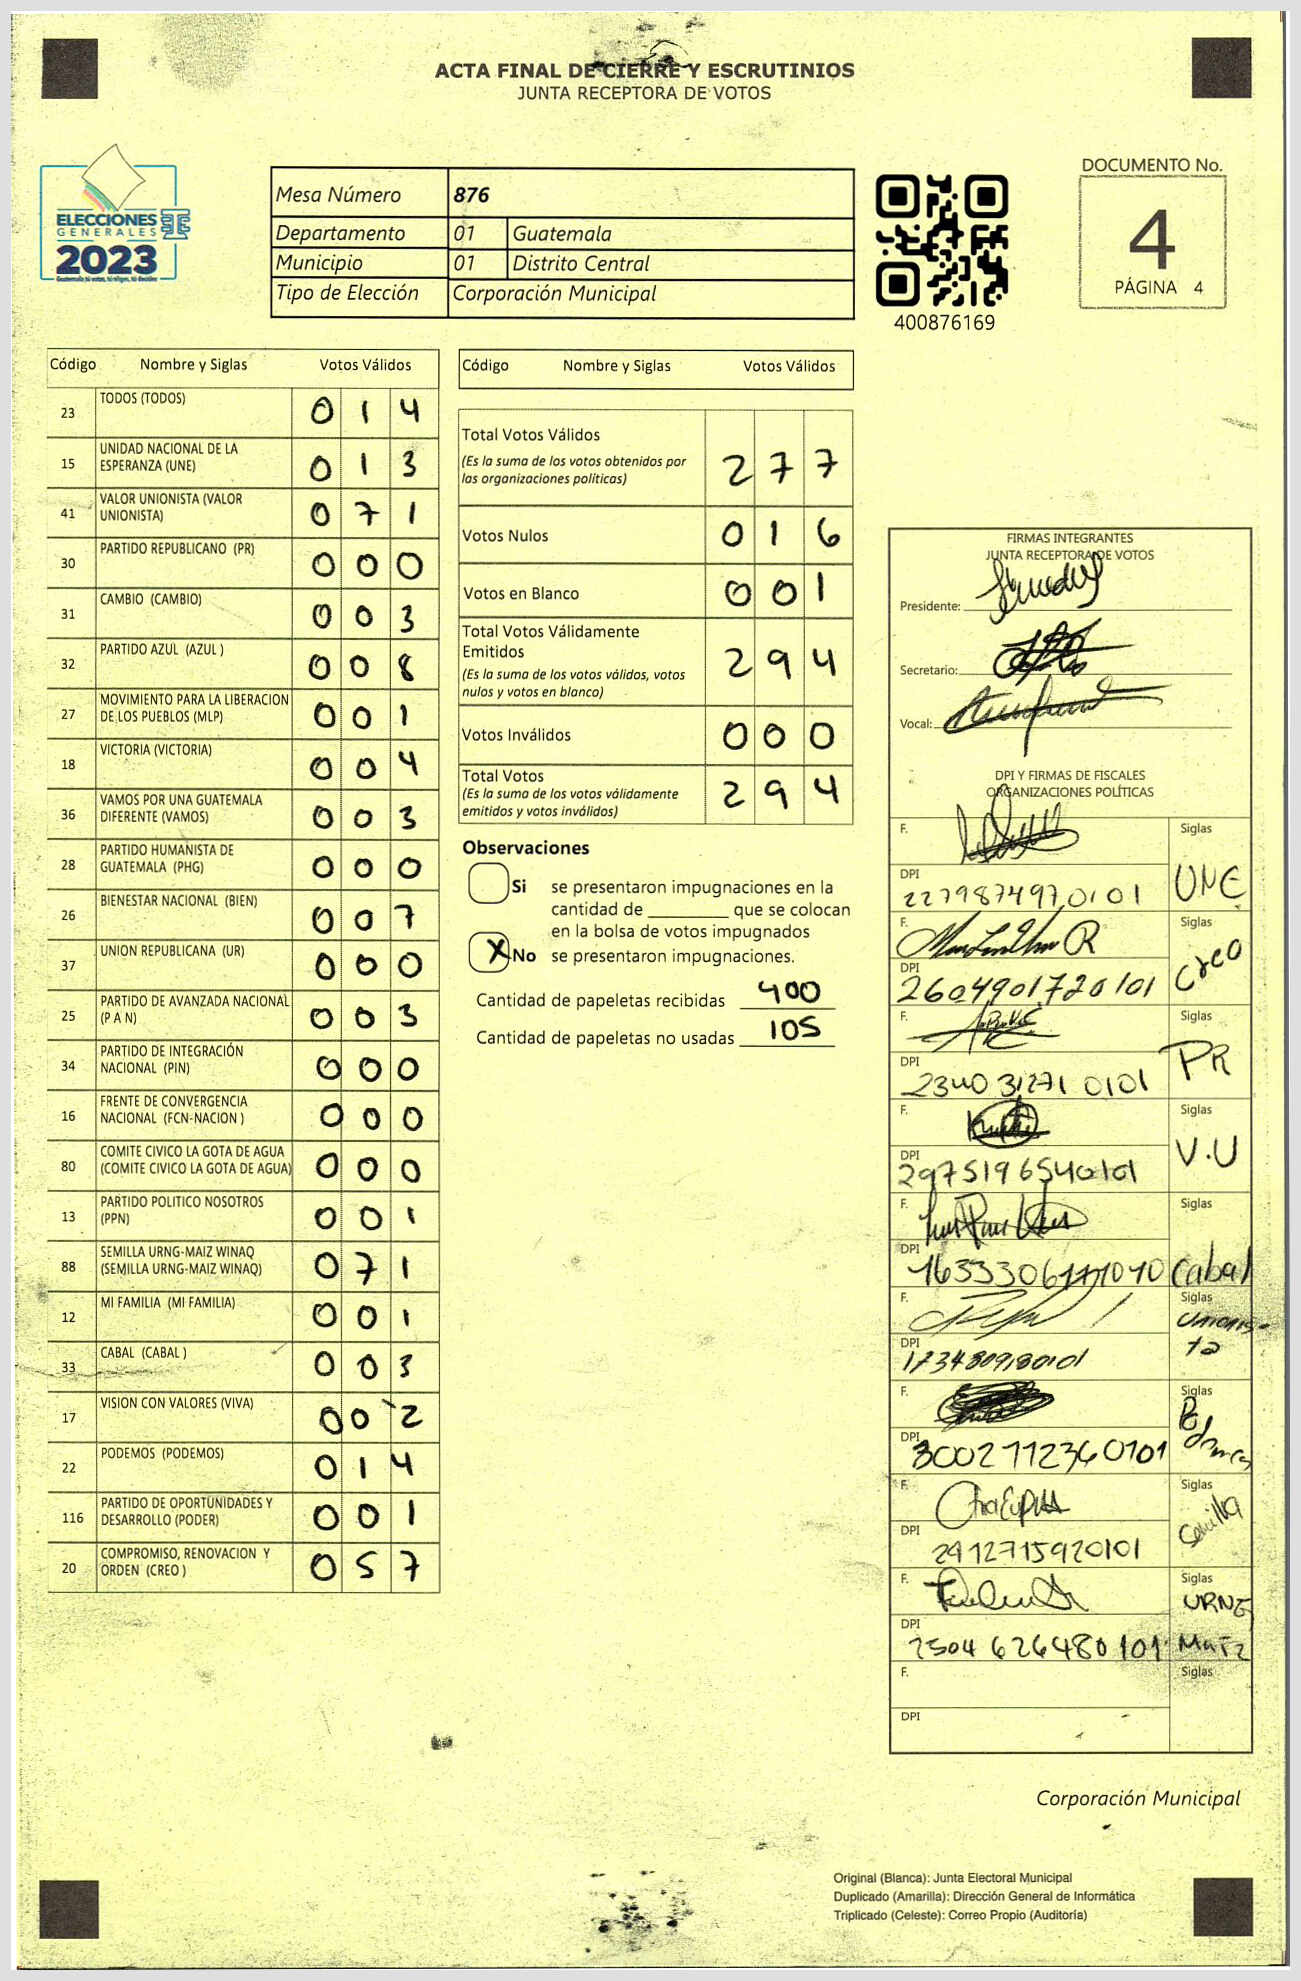 ACTA FINAL DE CIERRE Y ESCRUTINIOS
JUNTA RECEPTORA DE VOTOS
ELECCIONES
GENERALES
2023
Mesa Número 876
Departamento 01 Guatemala
Municipio 01 Distrito Central
Tipo de Elección Corporación Municipal
400876169
DOCUMENTO No.
4
PÁGINA 4
Código Nombre y Siglas Votos Válidos
23 TODOS (TODOS) 0 1 4
15 UNIDAD NACIONAL DE LA
ESPERANZA (UNE) 0 1 3
41 VALOR UNIONISTA (VALOR
UNIONISTA) 0 7 1
30 PARTIDO REPUBLICANO (PR) 0 0 0
31 CAMBIO (CAMBIO) 0 0 3
32 PARTIDO AZUL (AZUL ) 0 0 8
27 MOVIMIENTO PARA LA LIBERACION
DE LOS PUEBLOS (MLP) 0 0 1
18 VICTORIA (VICTORIA) 0 0 4
36 VAMOS POR UNA GUATEMALA
DIFERENTE (VAMOS) 0 0 3
28 PARTIDO HUMANISTA DE
GUATEMALA (PHG) 0 0 0
26 BIENESTAR NACIONAL (BIEN) 0 0 7
37 UNION REPUBLICANA (UR) 0 0 0
25 PARTIDO DE AVANZADA NACIONAL
(P A N) 0 0 3
34 PARTIDO DE INTEGRACIÓN
NACIONAL (PIN) 0 0 0
16 FRENTE DE CONVERGENCIA
NACIONAL (FCN-NACION ) 0 0 0
80 COMITE CIVICO LA GOTA DE AGUA
(COMITE CIVICO LA GOTA DE AGUA) 0 0 0
13 PARTIDO POLITICO NOSOTROS
(PPN) 0 0 1
88 SEMILLA URNG-MAIZ WINAQ
(SEMILLA URNG-MAIZ WINAQ) 0 7 1
12 MI FAMILIA (MI FAMILIA) 0 0 1
33 CABAL (CABAL ) 0 0 3
17 VISION CON VALORES (VIVA) 0 0 2
22 PODEMOS (PODEMOS) 0 1 4
116 PARTIDO DE OPORTUNIDADES Y
DESARROLLO (PODER) 0 0 1
20 COMPROMISO, RENOVACION Y
ORDEN (CREO ) 0 5 7
Código Nombre y Siglas Votos Válidos
Total Votos Válidos
(Es la suma de los votos obtenidos por
las organizaciones políticas) 2 7 7
Votos Nulos 0 1 6
Votos en Blanco 0 0 1
Total Votos Válidamente
Emitidos
(Es la suma de los votos válidos, votos
nulos y votos en blanco) 2 9 4
Votos Inválidos 0 0 0
Total Votos
(Es la suma de los votos válidamente
emitidos y votos inválidos) 2 9 4
Observaciones
Si se presentaron impugnaciones en la
cantidad de ________ que se colocan
en la bolsa de votos impugnados
X No se presentaron impugnaciones.
Cantidad de papeletas recibidas 400
Cantidad de papeletas no usadas 105
FIRMAS INTEGRANTES
JUNTA RECEPTORA DE VOTOS
Presidente:
Secretario:
Vocal:
DPI Y FIRMAS DE FISCALES
ORGANIZACIONES POLÍTICAS
F. Siglas
DPI 2279874970101 UNE
F. Siglas
DPI 2604901720101 Creo
F. Siglas
DPI 2340312710101 PR
F. Siglas
DPI 2975196540101 V.U
F. Siglas
DPI Cabal
F. Siglas
DPI 1734809180101 Unionis-
ta
F. Siglas
DPI 3002112360101 Podemos
F. Siglas
DPI 2912715920101 Semilla
F. Siglas
URNG
DPI 2504 626480101 Maiz
F. Siglas
DPI
Corporación Municipal
Original (Blanca): Junta Electoral Municipal
Duplicado (Amarilla): Dirección General de Informática
Triplicado (Celeste): Correo Propio (Auditoría)